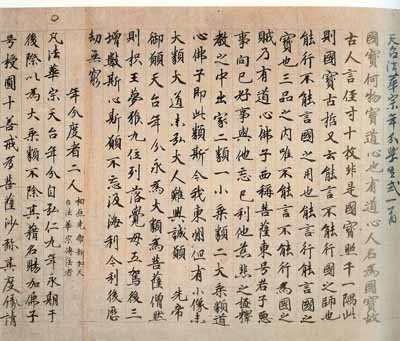 天台法華宗年分學生式一首
國寶何物寶道心也有道心人名為國寶故
古人言徑寸十枚非是國寶照千一隅此
國寶古哲又云能言不能行國之師也
能行不能言國之用也能行能言國之
寶也三品之内唯不能言不能行為國之
賊乃有道心佛子西稱菩薩東号君子惡
事向己好事與他忘己利他慈悲之極釋
教之中出家二類一小乘類二大乘類道
心佛子即此類斯今我東州但有小像未
大類大道未弘大人難興誠願 先帝
御願天台年分永為大類為菩薩僧然
則枳王夢猴九位列落覺母五駕後三
增數斯心斯願不忘汲海利今利後歷
劫無窮
年分度者二人 柏原先帝新加天
台法華宗傳法者
○凡法華宗天台年分自弘仁九年永期于
後際以為大乘類不除其籍名賜加佛子
号授圓十善戒為菩薩沙弥其度縁請